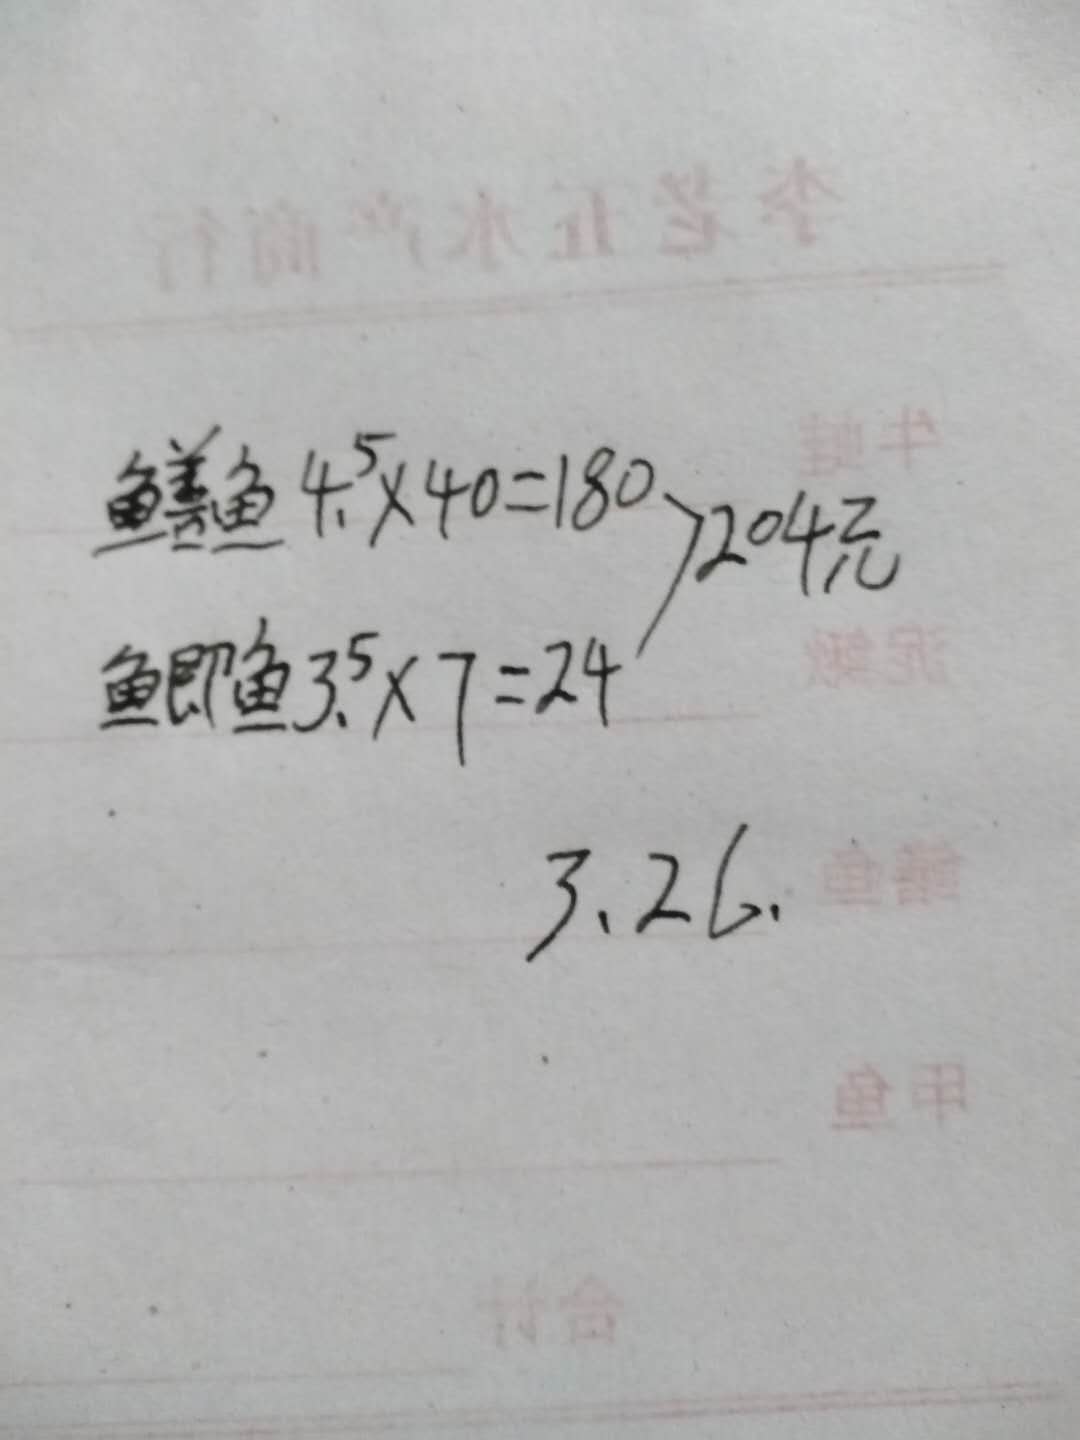 李老五水产商行
牛蛙
鳝鱼 4.5×40=180
204元
泥鳅
鲫鱼 3.5×7=24
3.26.
鳝鱼
甲鱼
合计